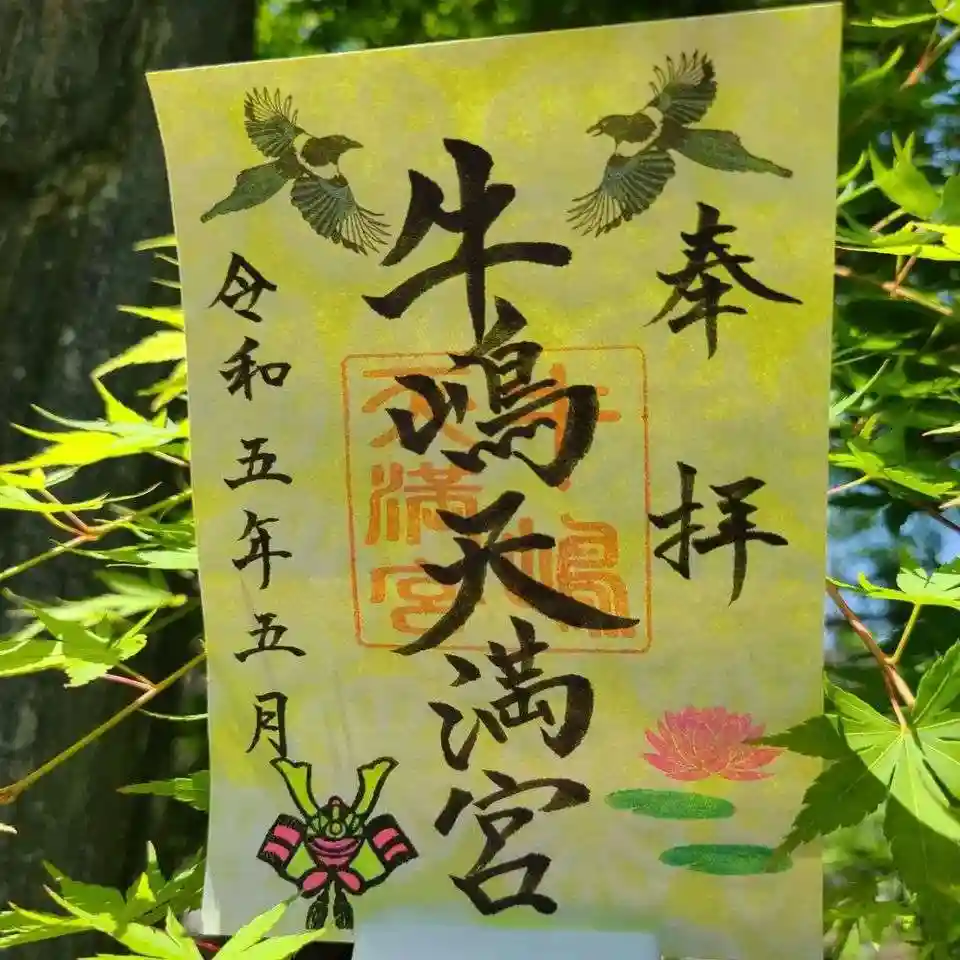 奉拝
牛嶋天満宮
牛嶋
天満宮
令和五年五月